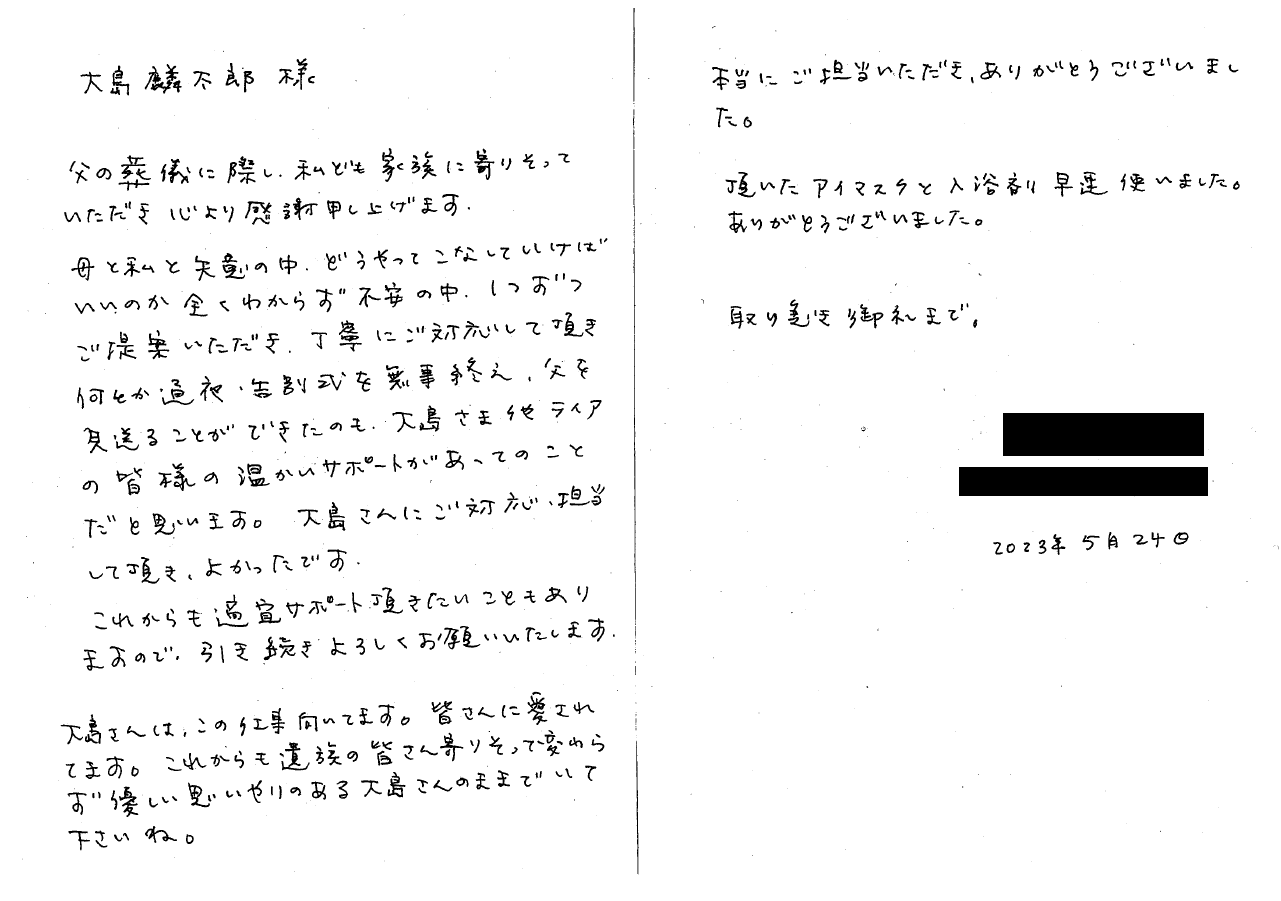 大島麟太郎 様
父の葬儀に際し、私ども家族に寄りそって
いただき心より感謝申し上げます.
母と私と夫の中、どうやってこなしていけば
いいのか全くわからず不安の中、1つずつ
ご提案いただき、丁寧にご対応して頂き
何とか通夜・告別式を無事終え、父を
見送ることができたのも、大島さま他ティア
の皆様の温かいサポートがあってのこと
だと思います。大島さんにご対応・担当
して頂き、よかったです.
これからも適宜サポート頂きたいこともあり
ますので、引き続きよろしくお願いいたします.
大島さんは、この仕事向いてます。皆さんに愛され
てます。これからも遺族の皆さん寄りそって変わら
ず優しい思いやりのある大島さんのままでいて
下さいね。
本当にご担当いただき、ありがとうございまし
た。
頂いたアイマスクと入浴剤早速使いました。
ありがとうございました。
取り急ぎ御礼まで。
2023年5月24日